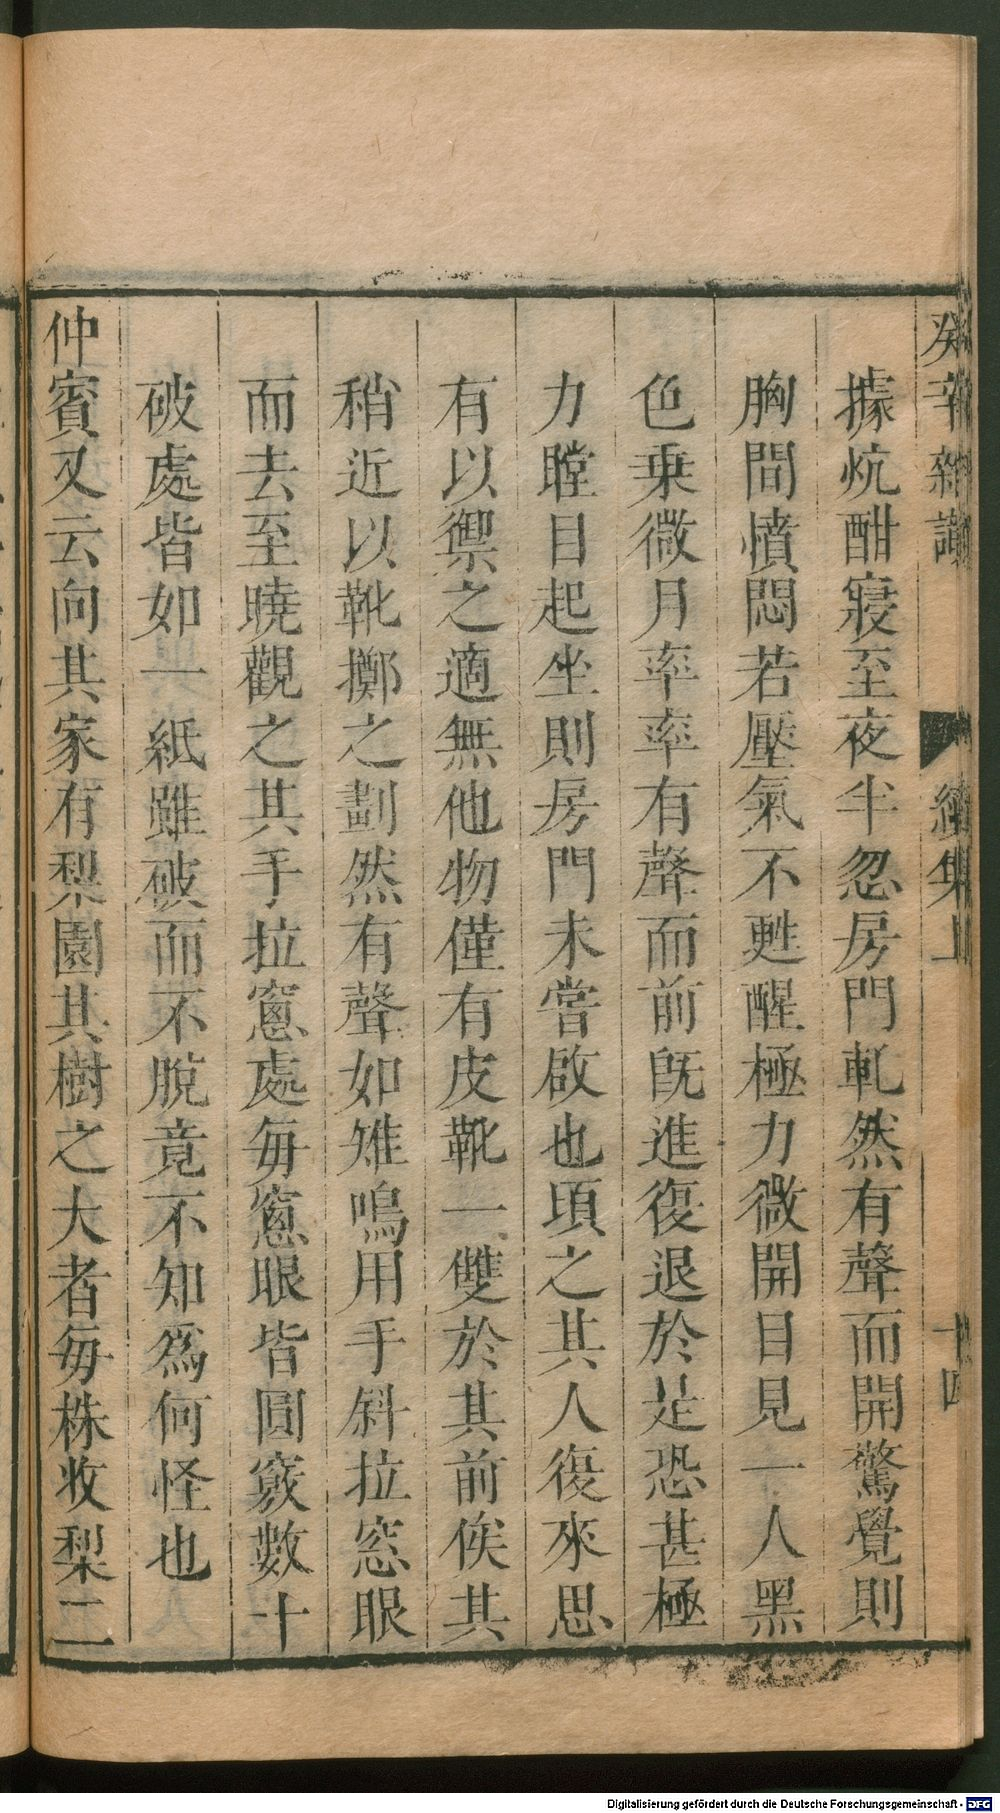 癸辛雜識
續集上
十四
據炕酣寢至夜半忽房門軋然有聲而開驚覺則
胸間憤悶若壓氣不甦醒極力微開目見一人黑
色乗微月率率有聲而前既進復退於是恐甚極
力瞠目起坐則房門未嘗啟也頃之其人復來思
有以禦之適無他物僅有皮靴一雙於其前俟其
稍近以靴擲之劃然有聲如雉鳴用手斜拉窓眼
而去至曉觀之其手拉窻處每窻眼皆圓竅數十
破處皆如一紙雖破而不脫竟不知爲何怪也
仲賓又云向其家有梨園其樹之大者每株收梨二
Digitalisierung gefördert durch die Deutsche Forschungsgemeinschaft - DFG